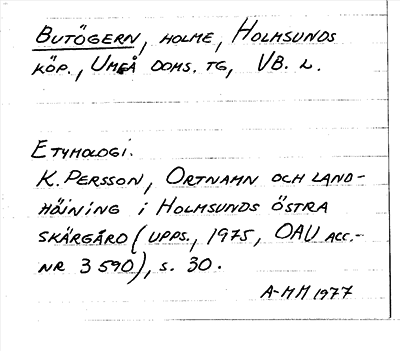 BUTÖGERN, HOLME, HOLMSUNDS
KÖP., UMEÅ DOMS. TG, VB. L.
ETYMOLOGI.
K. PERSSON, ORTNAMN OCH LAND-
HÖJNING I HOLMSUNDS ÖSTRA
SKÄRGÅRD (UPPS., 1975, OAU ACC.-
NR 3590), S. 30.
A-MM 1977